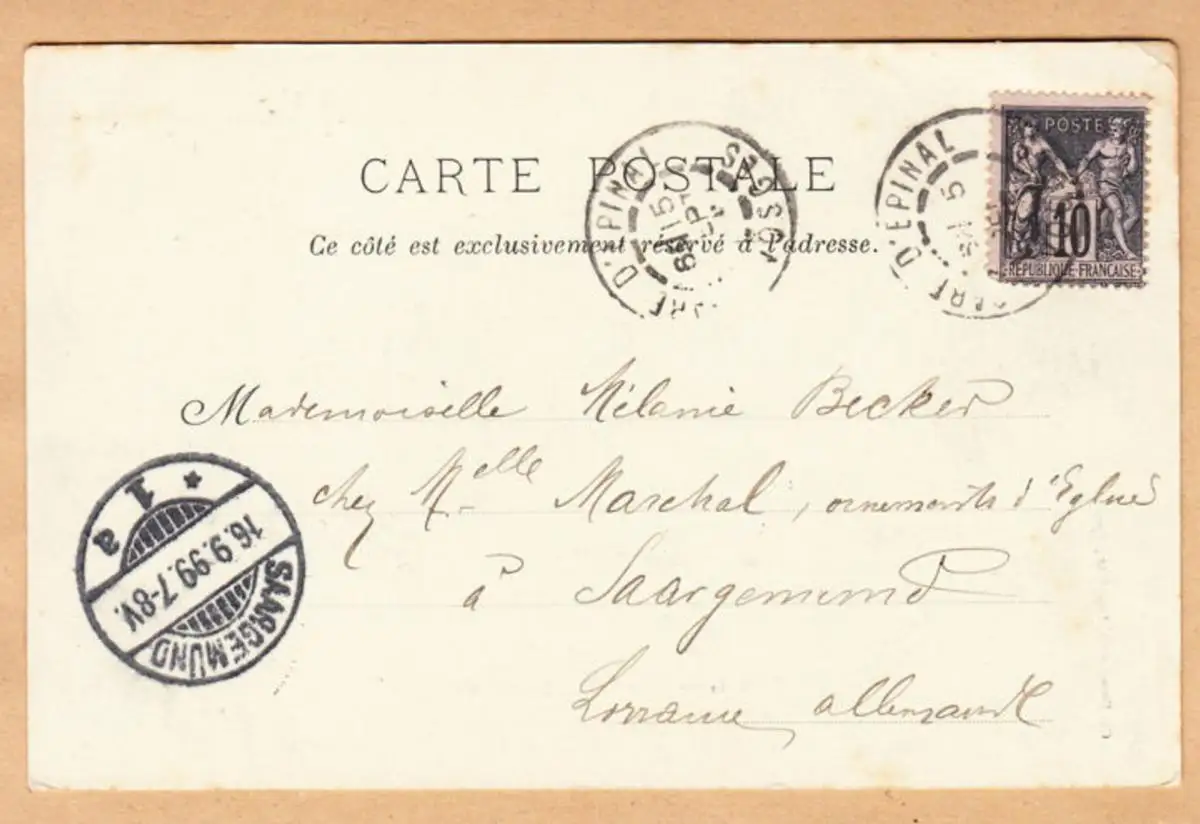 CARTE POSTALE
Ce côté est exclusivement réservé à l'adresse.
GARE D'EPINAL
GARE D'EPINAL
POSTE
10
REPUBLIQUE FRANÇAISE
Mademoiselle Mélanie Becker
chez Melle Marchal, ornements d'Eglise
à Saargemund
Lorraine allemande
* 1 a
16.9.99.7-8V.
SAARGEMUND